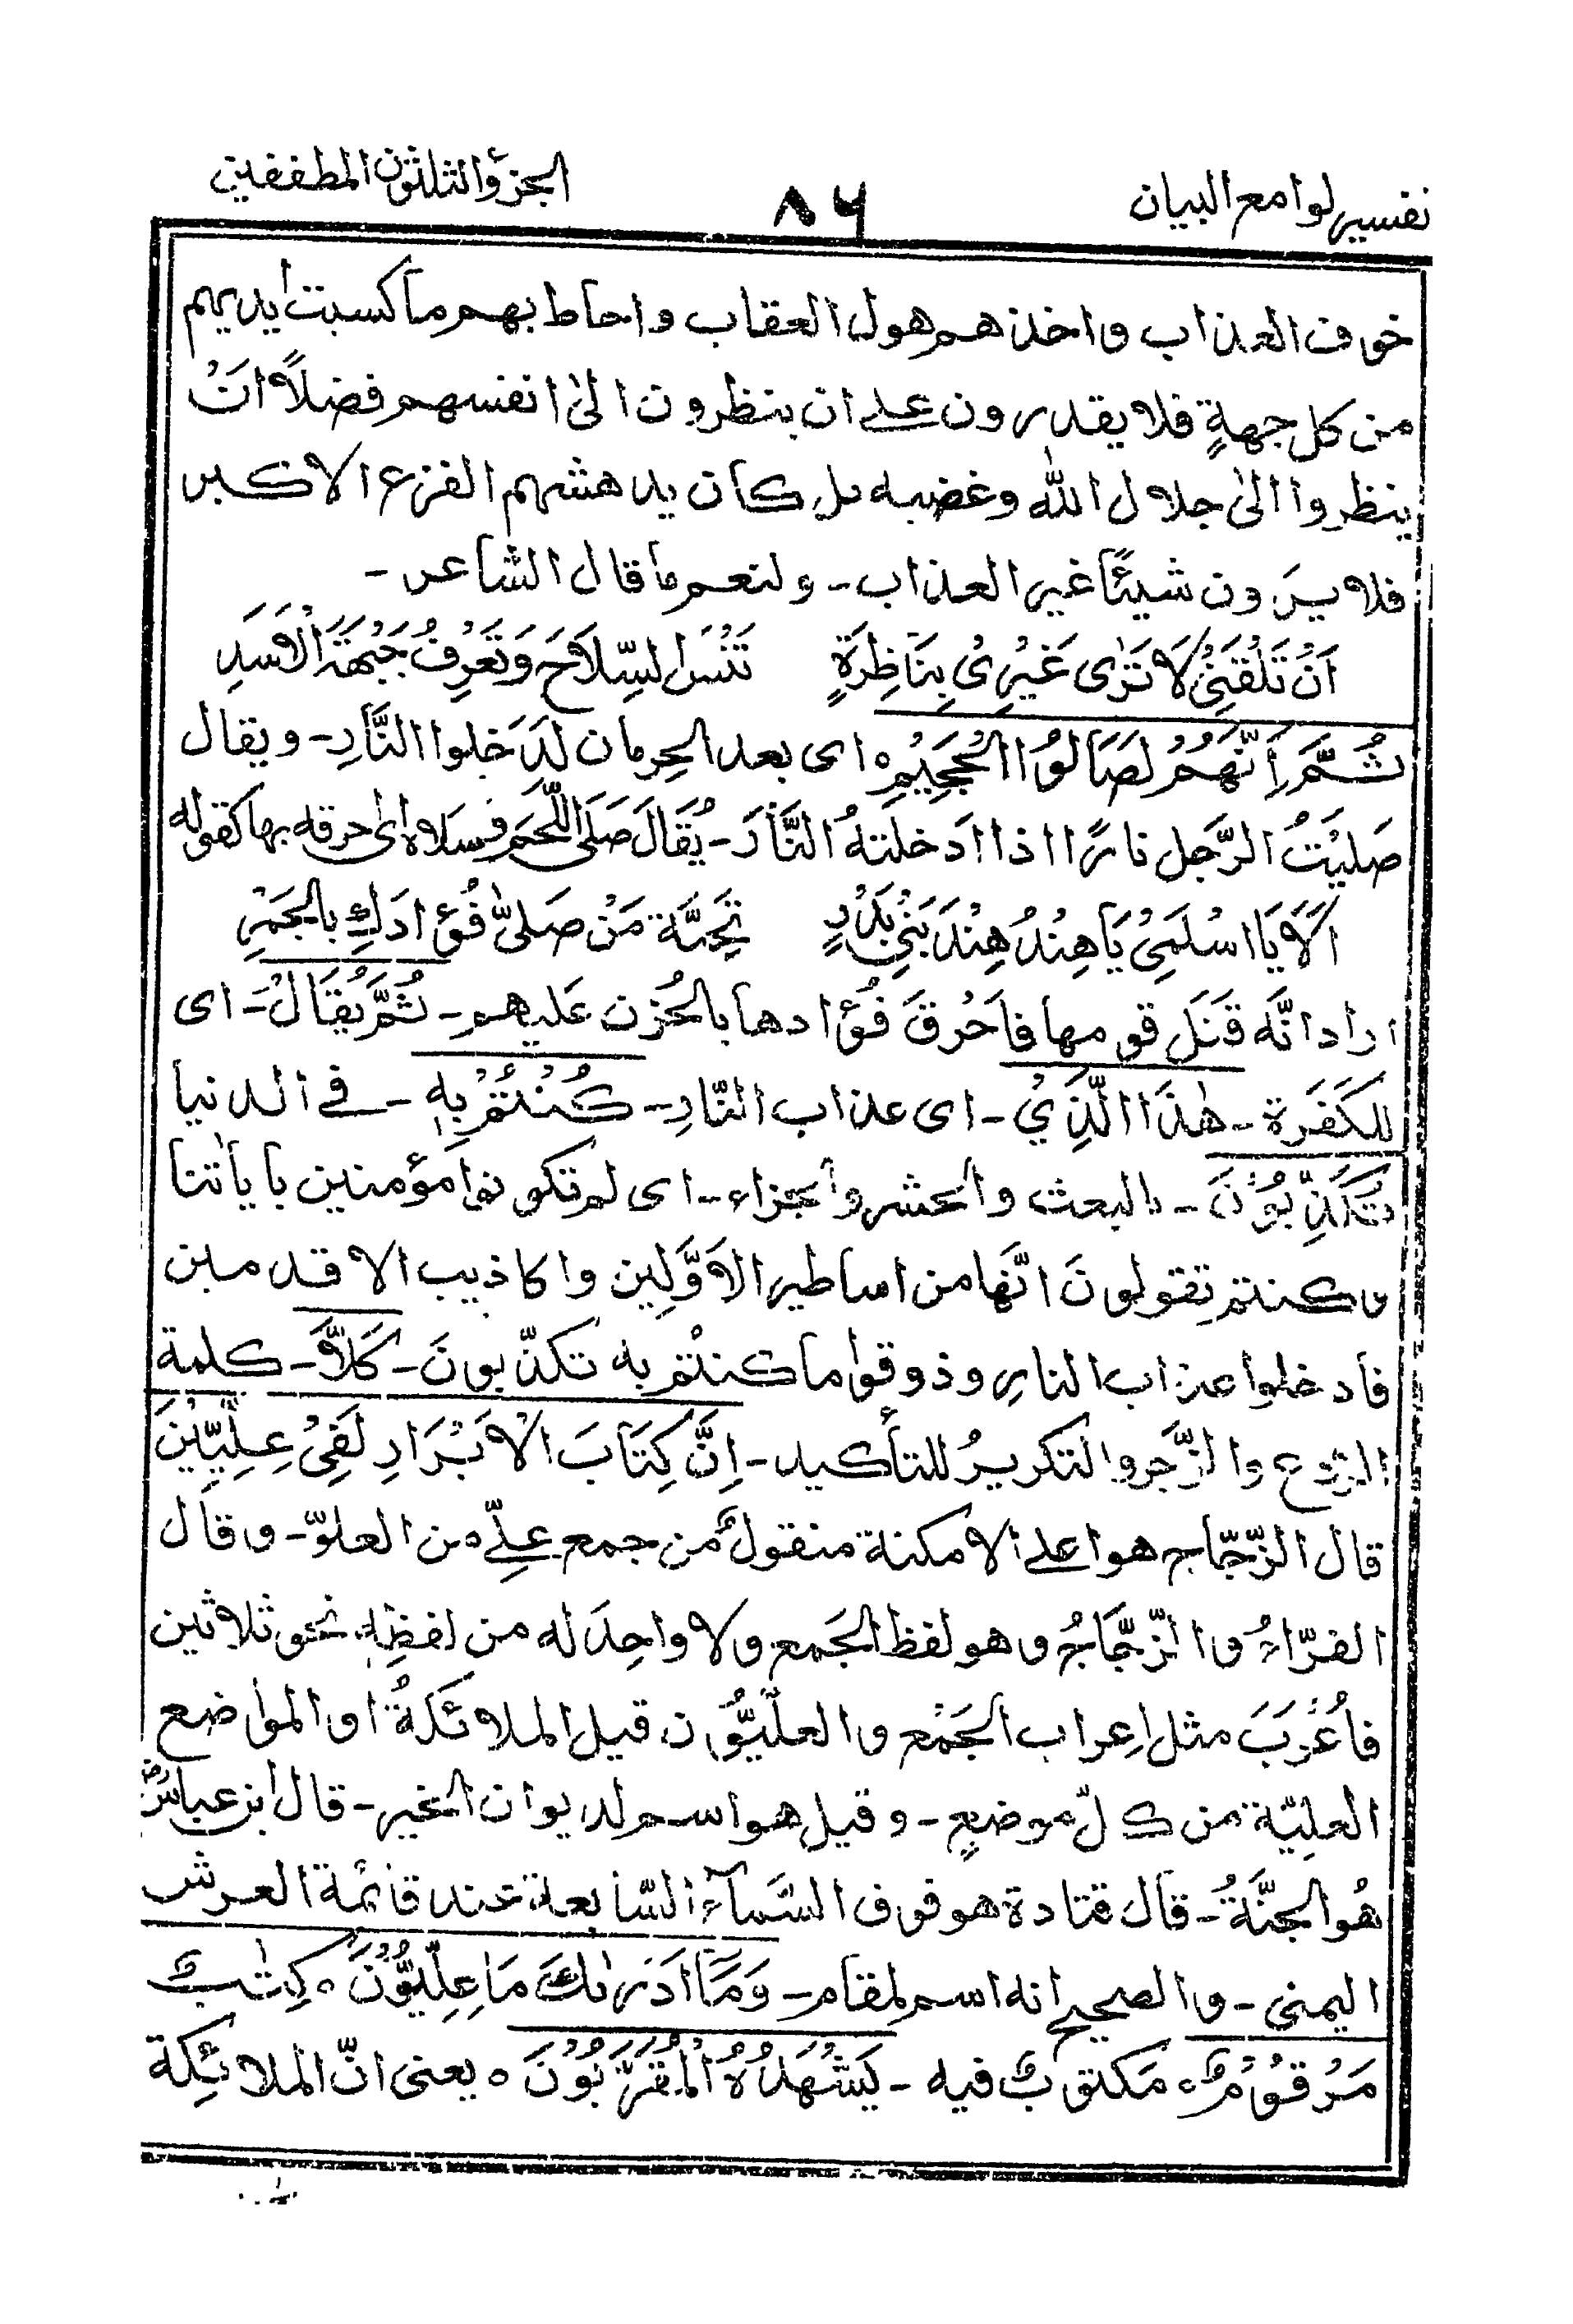 تفسير لوامع البيان
٨٦
الجزؤ الثلثون المطففين
خوف العذاب واخذهم هول العقاب واحاط بهم ما كسبت أيديهم
من كل جهةٍ فلا يقدرون علے ان ينظرون الىٰ انفسهم فضلاً انْ
ينظروا الىٰ جلال اللّٰه وغضبه بل كان يدهشهم الفزع الاكبر
فلا يرَون شيئًا غير العذاب - ولنعم ما قال الشاعر -
اَنْ تَلْقَنِيْ لَا تَرٰى غَيْرِيْ بِنَاظِرَةٍ تَنْسَ السِّلَاحَ وَتَعْرِفُ جَبْهَةَ الْاَسَدِ
ثُمَّ اِنَّهُمْ لَصَالُوا الْجَحِيْمِ ہ اى بعد الحِرمان لَدَخلوا النَّارِ - ويقال
صَليْتُ الرَّجل نارًا اذا ادَخلتهُ النَّارَ - يُقَالَ صَلَى اللَّحمَ فسلاه اىٰ حرقه بها كقوله
اَلَا يَا اسْلَمِيْ يَا هِنْدُ هِنْدَ بَنِيْ بَدْرٍ تَحِيَّة مَنْ صَلىّٰ فُؤادَكِ بالجَمْرِ
اراد انَّه قَتَل قومها فاَحْرقَ فُؤادها بالحُزن عَليهم - ثُمَّ يُقَالُ - اى
للكَفَرة - هٰذَا الَّذِيْ - اى عذاب النّارِ - كُنْتُمْ بِهٖ - فے الدنيا
تُكَذِّبُوْنَ - بالبعث والحشر والجزاء - اى لم تكونوا مؤمنين باٰياتنا
وكنتم تقولونَ انَّها من اساطير الاَوَّلِين واكاذيب الاقدمين
فادخلوا عذاب النارِ وذوقوا ما كنتْم به تكذّبونَ - كَلَّا - كلمة
الردع والزَّجر والتكريرُ للتأكيد - اِنَّ كِتَابَ الْاَبْرَارِ لَفِيْ عِلِّيِّيْنَ
قال الزّجّاج هو اعلے الامكنة منقولٌ من جمع عِلِّے من العلوّ - وقال
الفرّاءُ والزّجّاجُ وهو لفظ الجَمع ولا واحِدَ له من لفظِهٖ نحو ثلاثين
فاُعْرِبَ مثل اِعراب الجَمْع والعلّيُّون قيل الملائكةُ او المواضع
العلِيّة من كلّ موضعٍ - وقيل هو اسم لديوان الخير - قال ابن عباسؓ
هُو الجنَّةُ - قال قتادة هو فوق السَّمآء السّابعة عند قائمة العرش
اليمنى - والصحيح انه اسم لمقام - وَمَآ اَدْرٰىكَ مَا عِلِّيُّوْنَ ہ كِتٰبٌ
مَرْقُوْمٌ ہ مَكتوبٌ فيه - يَشْهَدُهُ الْمُقَرَّبُوْنَ ہ يعنى انّ الملائكة